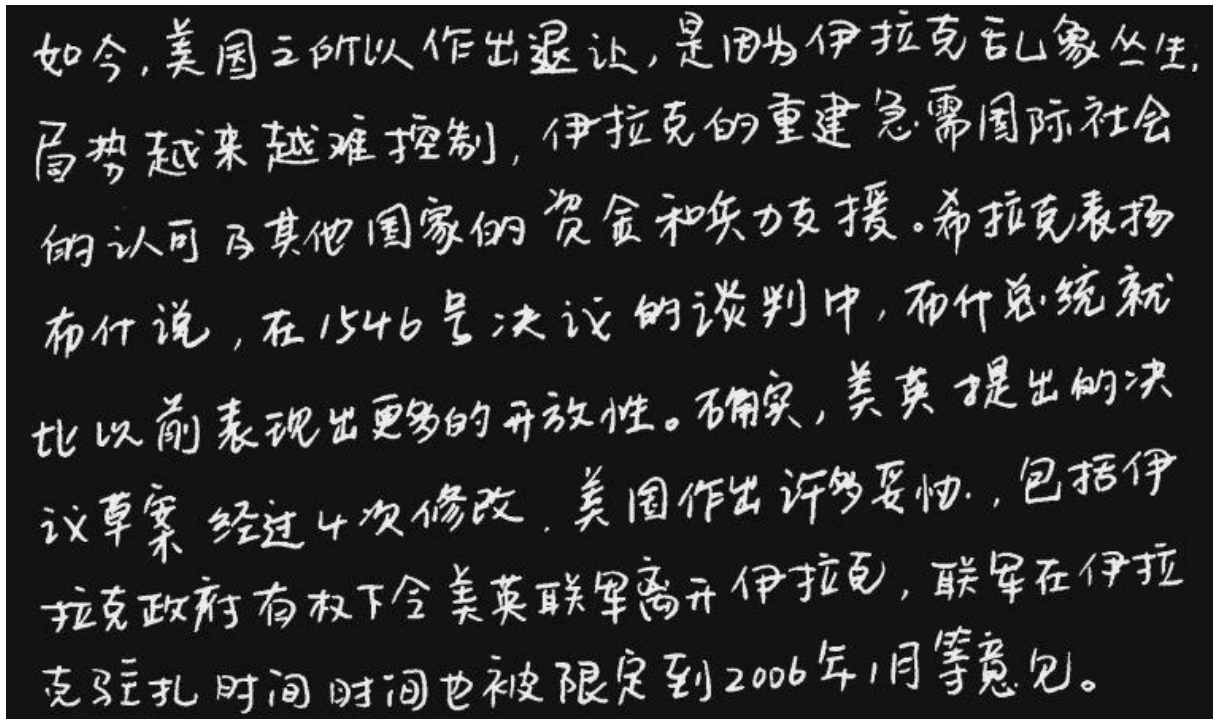 如今,美国之所以作出退让,是因为伊拉克乱象丛生,
局势越来越难控制,伊拉克的重建急需国际社会
的认可及其他国家的资金和兵力支援。希拉克表扬
布什说,在1546号决议的谈判中,布什总统就
比以前表现出更多的开放性。确实,美英提出的决
议草案经过4次修改,美国作出许多妥协,包括伊
拉克政府有权下令美英联军离开伊拉克,联军在伊拉
克驻扎时间时间也被限定到2006年1月等意见。